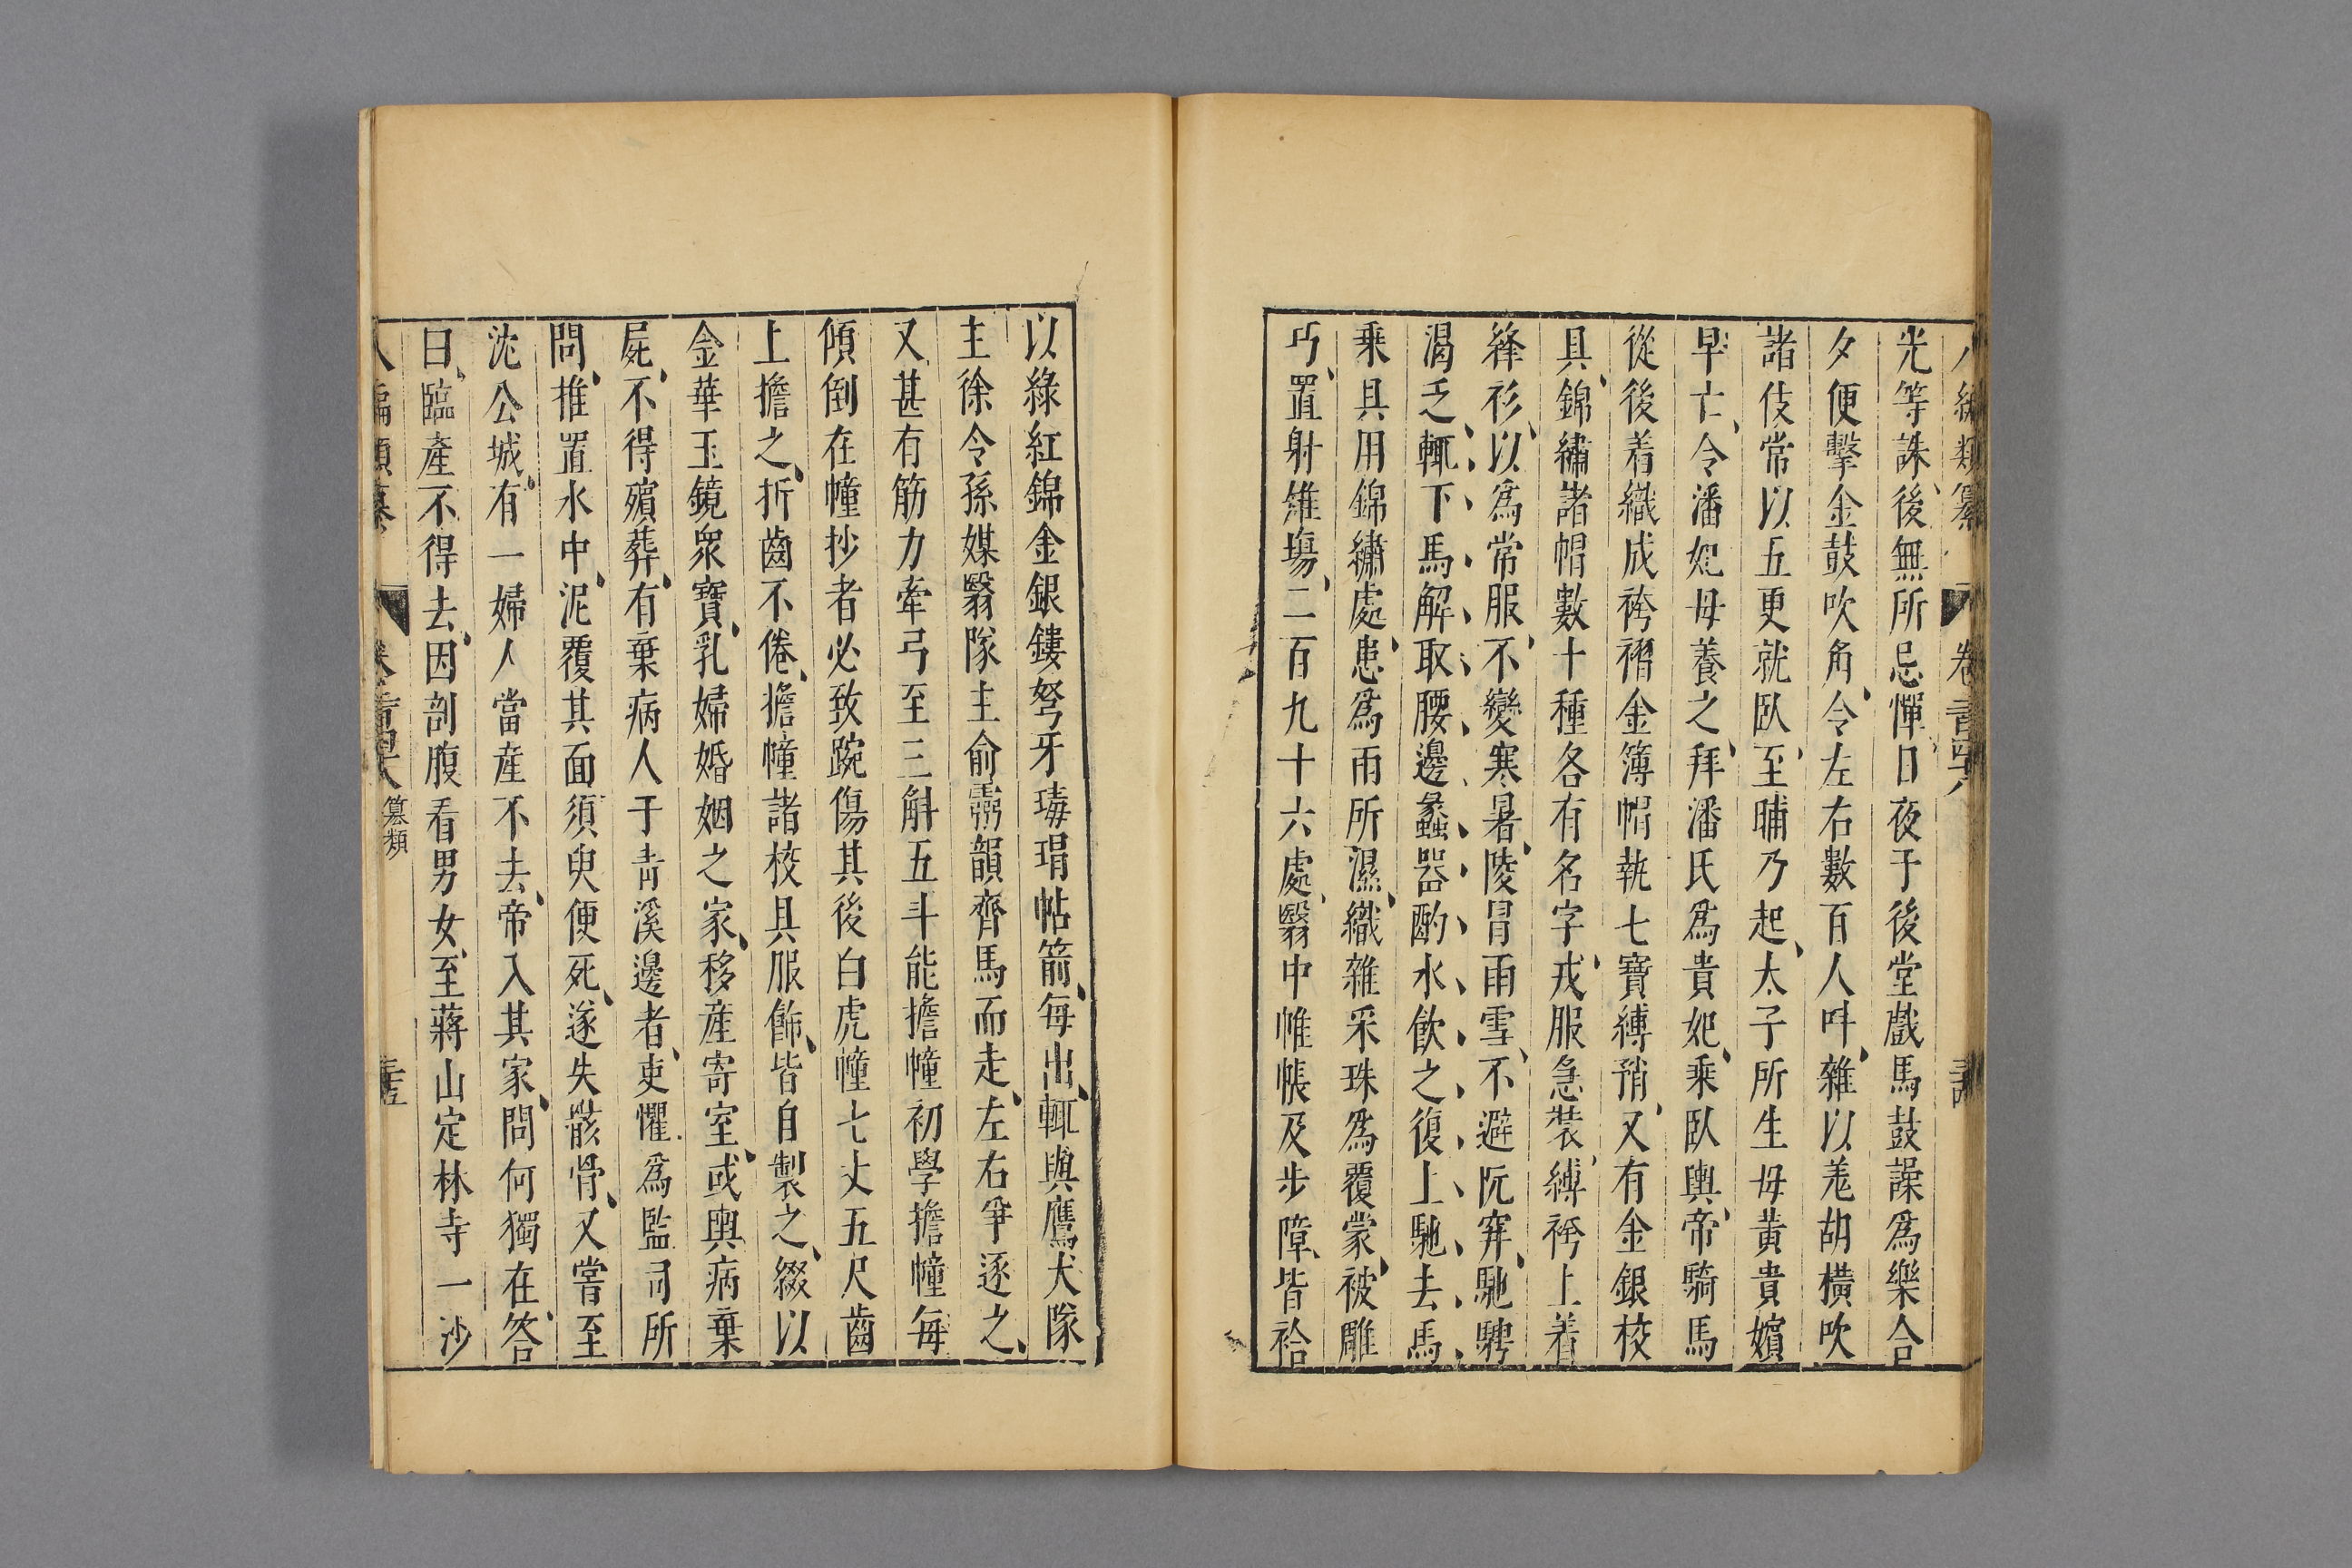 八編類纂 卷一百四十八
光等誅後無所忌憚日夜于後堂戲馬鼓譟爲樂合
夕便擊金鼓吹角令左右數百人呌雜以羗胡橫吹
諸伎常以五更就臥至晡乃起太子所生母黃貴嬪
早亡令潘妃母養之拜潘氏爲貴妃乘臥輿帝騎馬
從後着織成袴褶金薄帽執七寶縛矟又有金銀校
具錦繡諸帽數十種各有名字戎服急裝縛袴上着
絳衫以爲常服不變寒暑陵冐雨雪不避阬穽馳騁
渴乏輒下馬解取腰邊蠡器酌水飲之復上馳去馬
乘具用錦繡處患爲雨所濕織雜采珠爲覆蒙被雕
巧置射雉場二百九十六處翳中帷帳及步障皆袷
以綠紅錦金銀鏤弩牙瑇瑁帖箭每出輒與鷹犬隊
主徐令孫媒翳隊主俞靈韻齊馬而走左右爭逐之
又甚有筋力牽弓至三斛五斗能擔幢初學擔幢每
傾倒在幢抄者必致踠傷其後白虎幢七丈五尺齒
上擔之折齒不倦擔幢諸校具服飾皆自製之綴以
金華玉鏡衆寶乳婦婚姻之家移産寄室或輿病棄
屍不得殯葬有棄病人于青溪邊者吏懼爲監司所
問推置水中泥覆其面須臾便死遂失骸骨又嘗至
沈公城有一婦人當産不去帝入其家問何獨在答
曰臨產不得去因剖腹看男女至蔣山定林寺一沙
八編類纂 卷一百四十八 篡類 三十五